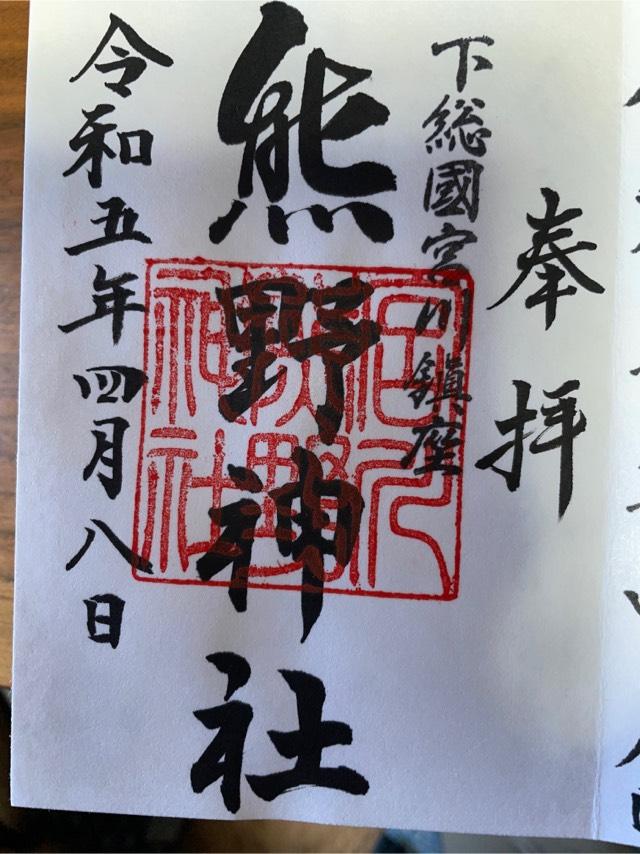 奉拝
下総國宮川鎮座
熊野神社
令和五年四月八日